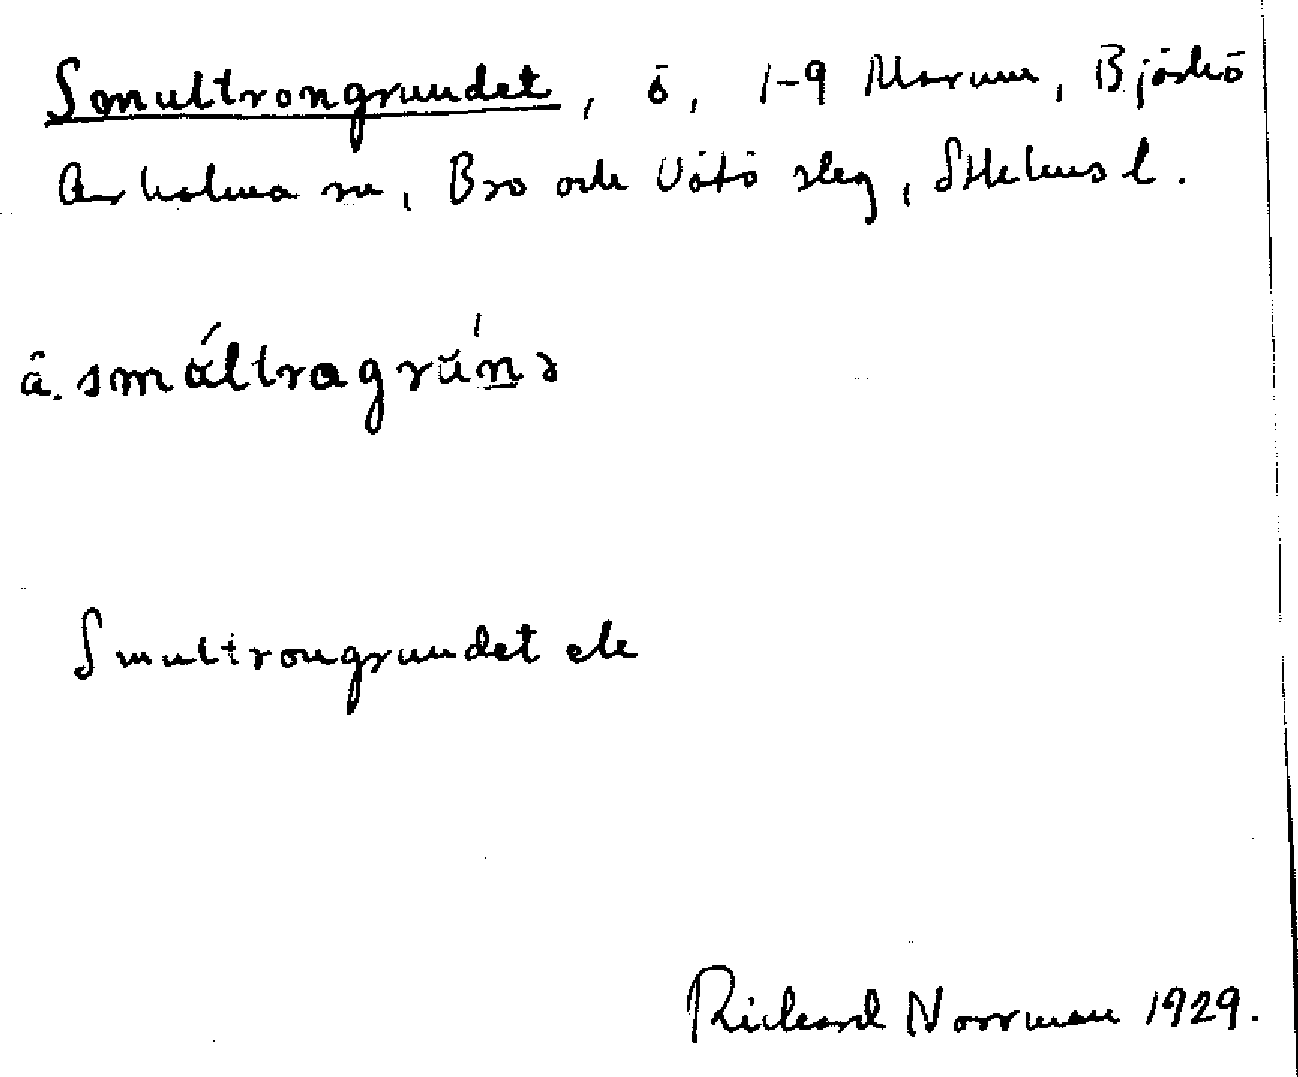 Smultrongrundet, ö, 1-9 Marum, Björkö
Arholma sn, Bro och Vätö slg, Sthlms l.
â. smáltragrŭ́nə
Smultrongrundet ek
Richard Norrman 1929.